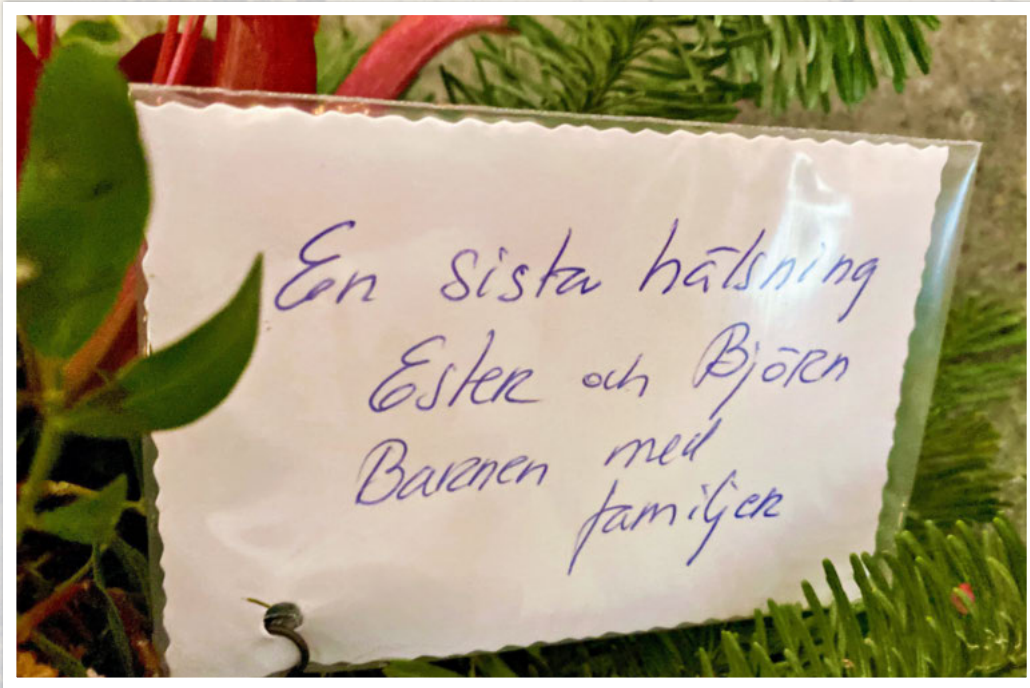 En sista hälsning
Ester och Björn
Barnen med
familjer